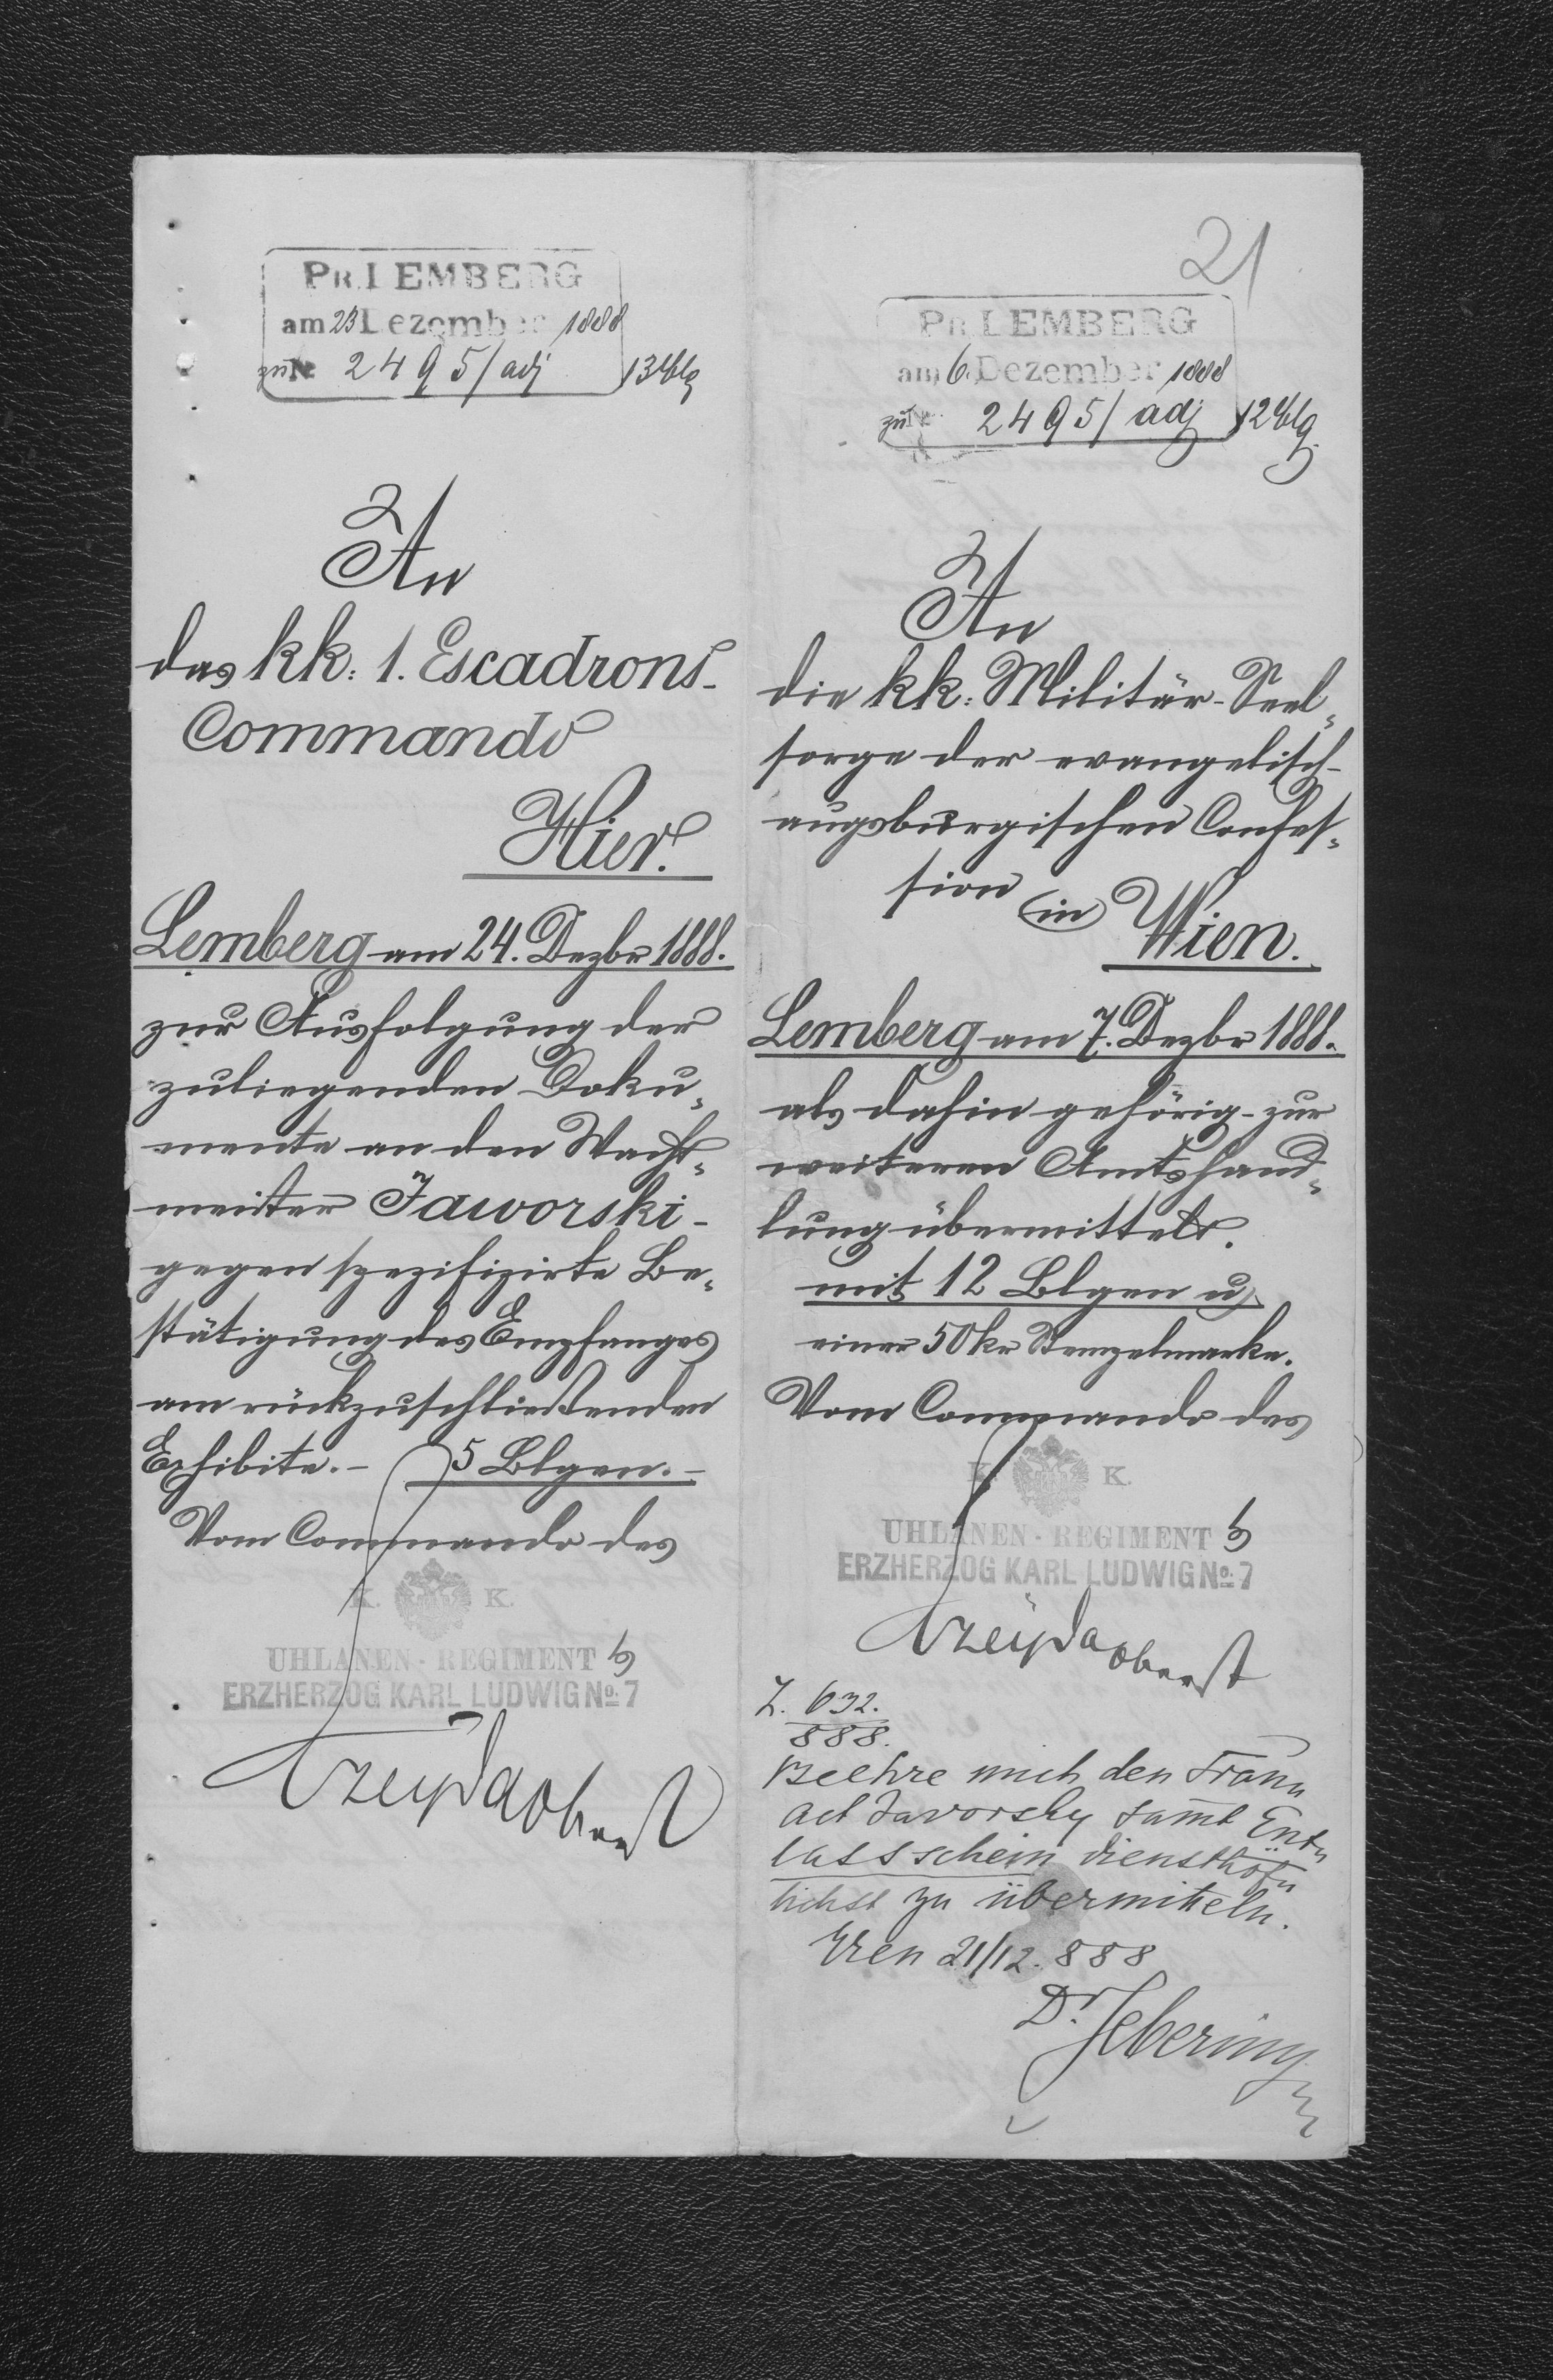 PR. LEMBERG
am 23 Dezember 1888
zu Nr. 2495/adj 13 Blg
An
das kk: 1. Escadrons-
Commando
Hier.
Lemberg am 24. Dezbr 1888.
zur Ausfolgung der
zuliegenden Doku„
mente an den Wacht„
meister Jaworski -
gegen spezifizirte Be„
stätigung des Empfanges
am rückzuschließenden
Exhibite. - 5 Blgen. -
Vom Commando des
K. K.
UHLANEN-REGIMENT
ERZHERZOG KARL LUDWIG No. 7
Oberst
21
PR. LEMBERG
am 6. Dezember 1888
zu Nr. 2495/adj 12 Blg.
An
die kk: Militär-Seel„
sorge der evangelisch-
augsburgischen Confes„
sion in Wien.
Lemberg am 7. Dezbr 1888.
als dahin gehörig - zur
weiteren Amtshand„
lung übermittelt.
mit 12 Blgen u.
einer 50 kr Stempelmarke.
Vom Commando des
K. K.
UHLANEN-REGIMENT
ERZHERZOG KARL LUDWIG No. 7
Oberst
Z. 632.
888.
Beehre mich den Trau„
act Javorsky sammt Ent„
lassschein diensthöf„
lichst zu übermitteln.
Wien 21/12. 888
Dr.